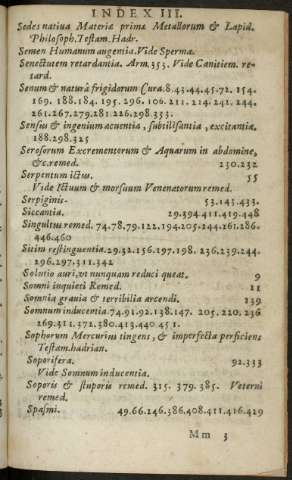 INDEX III.
Sedes natiua Materiæ primæ Metallorum & Lapid.
Philosoph. Testam. Hadr.
Semen Humanum augentia. Vide Sperma.
Senectutem retardantia. Arm. 353. Vide Canitiem. re-
tard.
Senum & naturâ frigidorum Cura. 8. 43. 44. 45. 72. 154.
169. 188. 184. 195. 296. 106. 211. 214. 241. 244.
261. 267. 279. 281. 226. 298. 353.
Sensus & ingenium acuentia, subtilisantia, excitantia.
188. 298. 325
Seroforum Excrementorum & Aquarum in abdomine,
&c. remed. 230. 232
Serpentum ictus. 55
Vide Ictuum & morsuum Venenatorum remed.
Serpiginis. 53. 143. 433.
Siccantia. 29. 394. 411. 419. 448
Singultus remed. 74. 78. 79. 122. 194. 205. 244. 261. 286.
446. 460
Sitim restinguentia. 29. 32. 156. 197. 198. 236. 239. 244.
296. 297. 311. 342
Solutio auri, vt nunquam reduci queat. 9
Somni inquieti Remed. 11
Somnia grauia & terribilia arcendi. 139
Somnum inducentia. 74. 91. 92. 138. 147. 205. 220. 236
269. 311. 372. 380. 413. 440. 451.
Sophorum Mercurius tingens, & imperfecta perficiens
Testam. hadrian.
Soporifera. 92. 333
Vide Somnum inducentia.
Soporis & stuporis remed. 315. 379. 385. Veterni
remed.
Spasmi. 49. 66. 246. 386. 408. 411. 416. 429
Mm 3